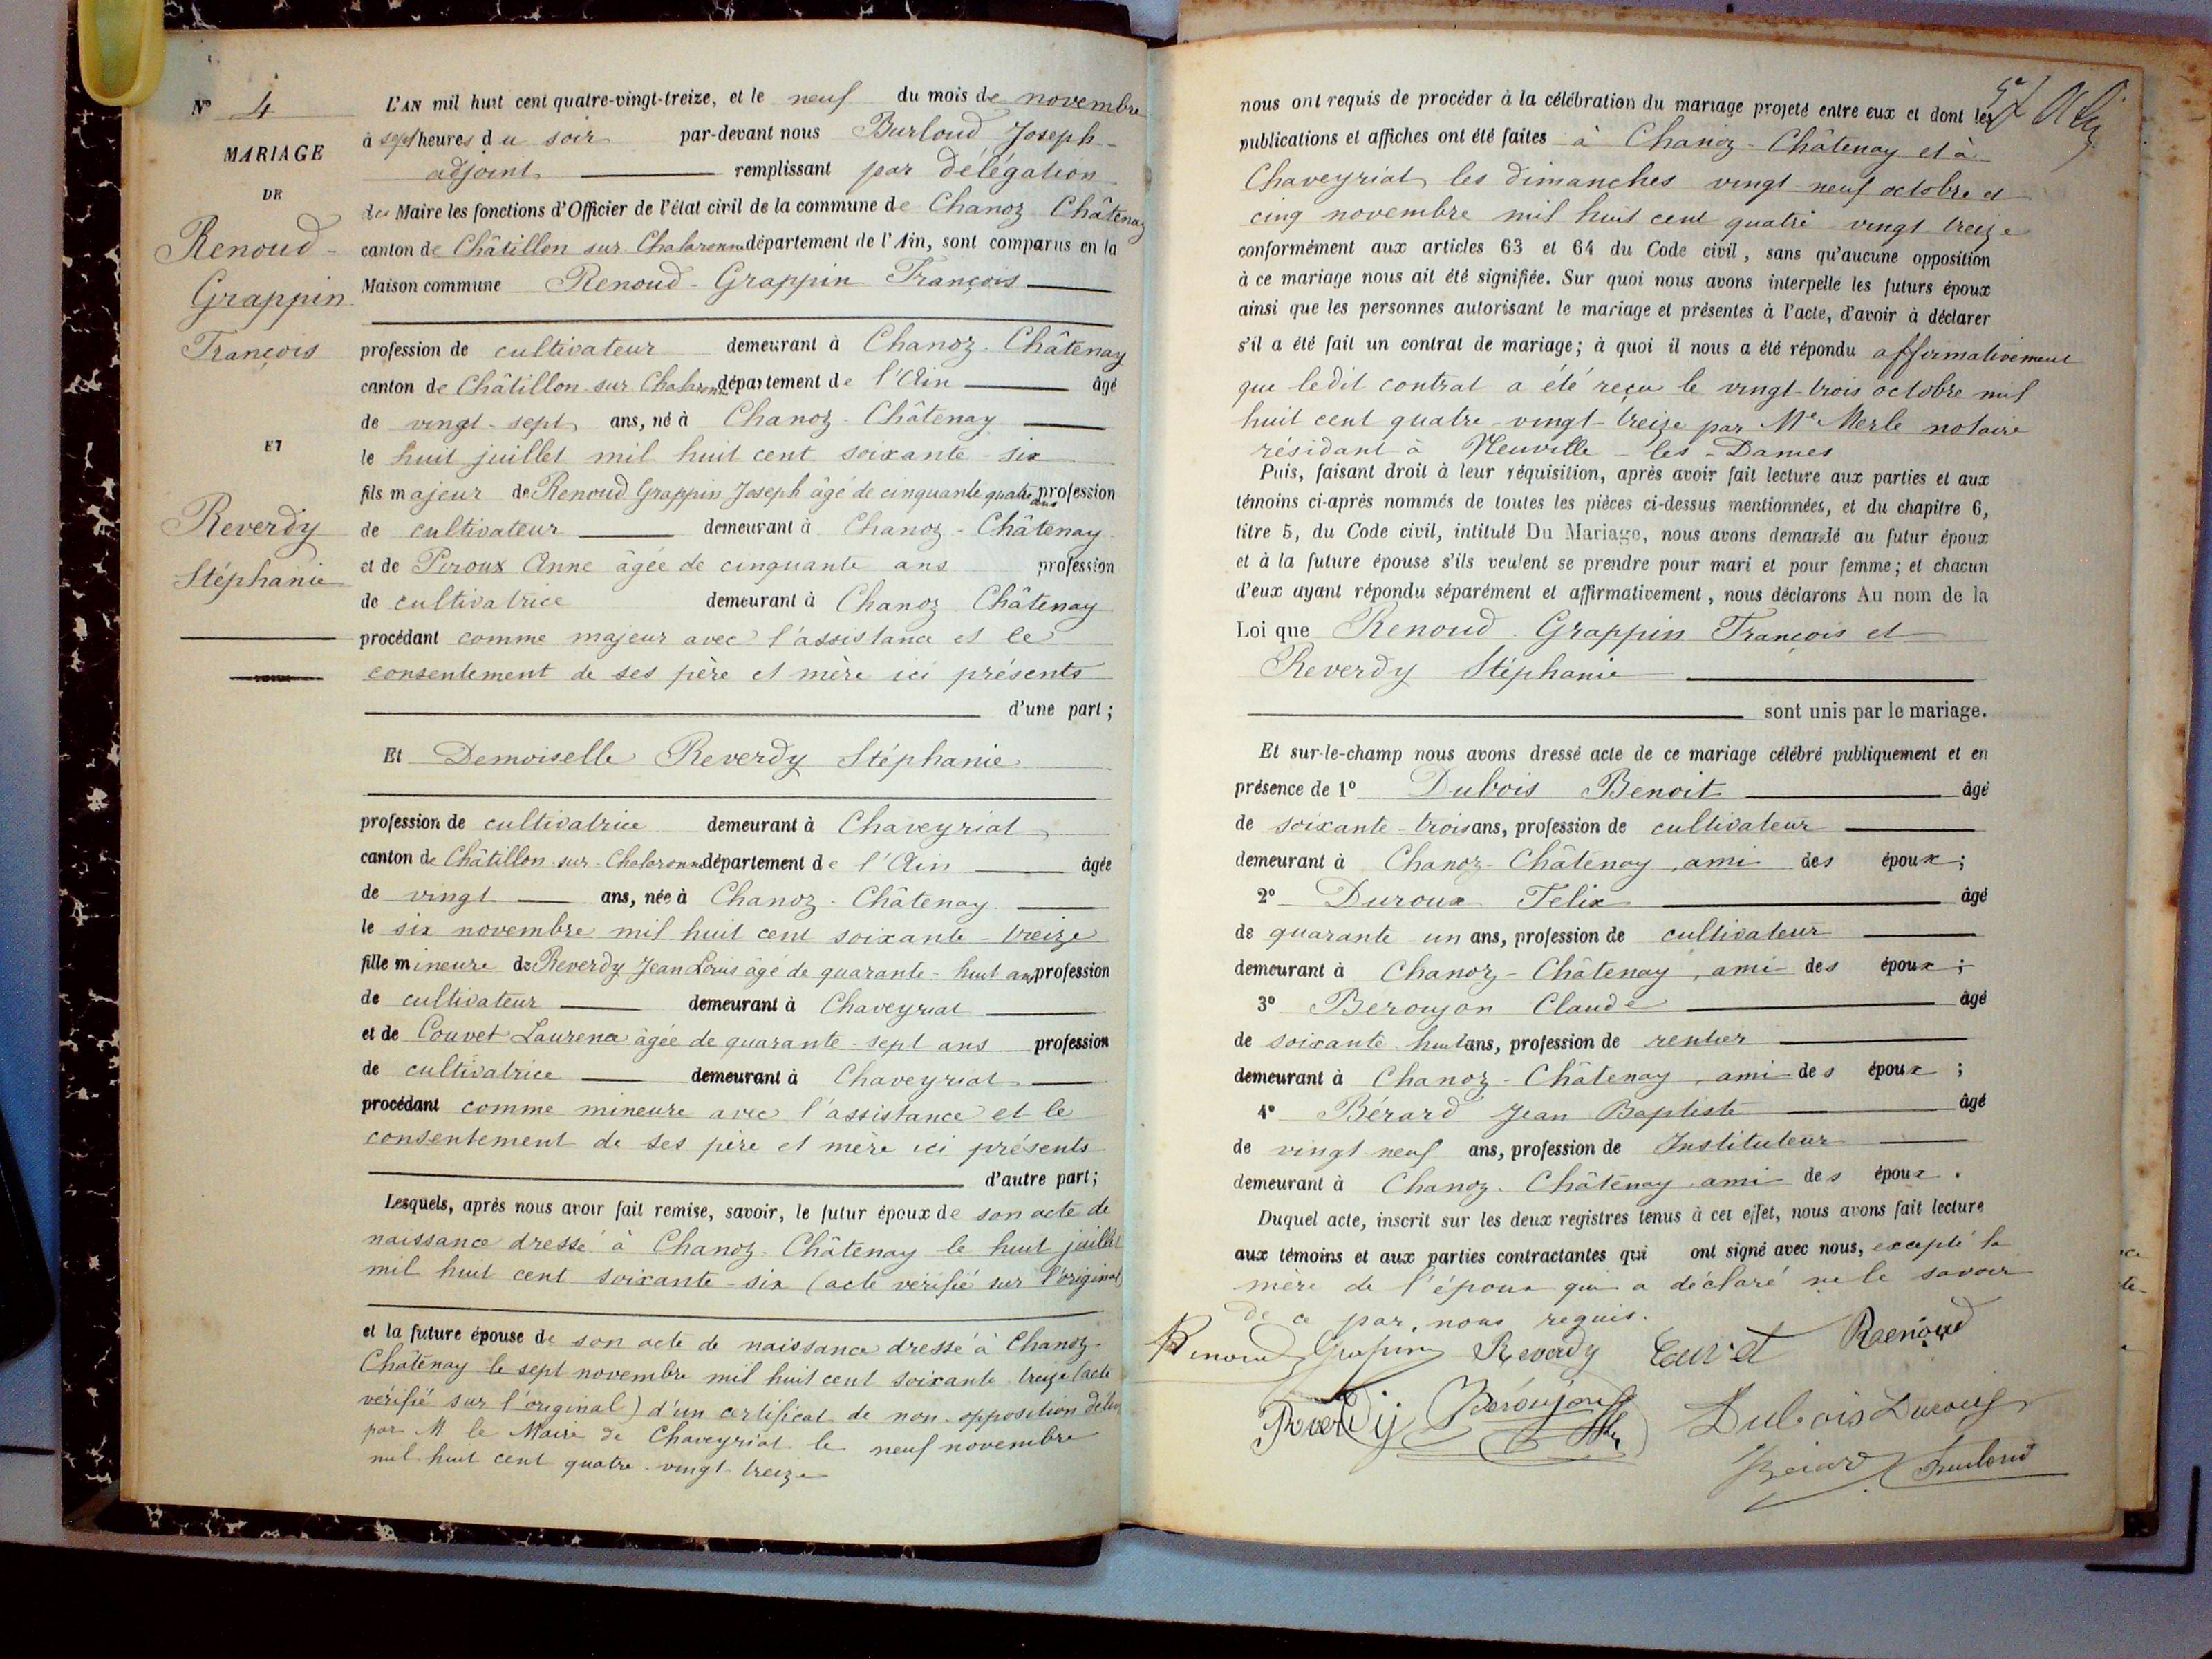 N° 4
MARIAGE
DE
Renoud-
Grappin
François
ET
Reverdy
Stéphanie
L'AN mil huit cent quatre-vingt-treize, et le neuf du mois de novembre
à sept heures du soir par-devant nous Burloud Joseph
adjoint remplissant par délégation
du Maire les fonctions d'Officier de l'état civil de la commune de Chanoz-Châtenay
canton de Châtillon sur Chalaronne département de l'Ain, sont comparus en la
Maison commune Renoud-Grappin François
profession de cultivateur demeurant à Chanoz-Châtenay
canton de Châtillon-sur-Chalaronne département de l'Ain âgé
de vingt-sept ans, né à Chanoz-Châtenay
le huit juillet mil huit cent soixante-six
fils majeur de Renoud Grappin Joseph âgé de cinquante quatre ans profession
de cultivateur demeurant à Chanoz-Châtenay
et de Peroux Anne âgée de cinquante ans profession
de cultivatrice demeurant à Chanoz Châtenay
procédant comme majeur avec l'assistance et le
consentement de ses père et mère ici présents
d'une part;
Et Demoiselle Reverdy Stéphanie
profession de cultivatrice demeurant à Chaveyriat
canton de Châtillon-sur-Chalaronne département de l'Ain âgée
de vingt ans, née à Chanoz-Châtenay
le six novembre mil huit cent soixante-treize
fille mineure de Reverdy Jean Louis âgé de quarante-huit ans profession
de cultivateur demeurant à Chaveyriat
et de Couvet Laurence âgée de quarante-sept ans profession
de cultivatrice demeurant à Chaveyriat
procédant comme mineure avec l'assistance et le
consentement de ses père et mère ici présents
d'autre part;
Lesquels, après nous avoir fait remise, savoir, le futur époux de son acte de
naissance dressé à Chanoz-Châtenay le huit juillet
mil huit cent soixante-six (acte vérifié sur l'original)
et la future épouse de son acte de naissance dressé à Chanoz-
Châtenay le sept novembre mil huit cent soixante-treize (acte
vérifié sur l'original) d'un certificat de non-opposition délivré
par M le Maire de Chaveyriat le neuf novembre
mil huit cent quatre-vingt-treize
nous ont requis de procéder à la célébration du mariage projeté entre eux et dont les
publications et affiches ont été faites à Chanoz-Châtenay et à
Chaveyriat les dimanches vingt-neuf octobre et
cinq novembre mil huit cent quatre-vingt treize
conformément aux articles 63 et 64 du Code civil, sans qu'aucune opposition
à ce mariage nous ait été signifiée. Sur quoi nous avons interpellé les futurs époux
ainsi que les personnes autorisant le mariage et présentes à l'acte, d'avoir à déclarer
s'il a été fait un contrat de mariage; à quoi il nous a été répondu affirmativement
que ledit contrat a été reçu le vingt-trois octobre mil
huit cent quatre-vingt-treize par Me Merle notaire
résidant à Neuville-les-Dames
Puis, faisant droit à leur réquisition, après avoir fait lecture aux parties et aux
témoins ci-après nommés de toutes les pièces ci-dessus mentionnées, et du chapitre 6,
titre 5, du Code civil, intitulé Du Mariage, nous avons demandé au futur époux
et à la future épouse s'ils veulent se prendre pour mari et pour femme; et chacun
d'eux ayant répondu séparément et affirmativement, nous déclarons Au nom de la
Loi que Renoud-Grappin François et
Reverdy Stéphanie
sont unis par le mariage.
Et sur-le-champ nous avons dressé acte de ce mariage célébré publiquement et en
présence de 1° Dubois Benoit âgé
de soixante-trois ans, profession de cultivateur
demeurant à Chanoz-Châtenay, ami des époux;
2° Duroux Felix âgé
de quarante-un ans, profession de cultivateur
demeurant à Chanoz-Châtenay, ami des époux;
3° Beroujon Claude âgé
de soixante-huit ans, profession de rentier
demeurant à Chanoz-Châtenay, ami des époux;
4° Bérard Jean Baptiste âgé
de vingt neuf ans, profession de Instituteur
demeurant à Chanoz-Châtenay ami des époux.
Duquel acte, inscrit sur les deux registres tenus à cet effet, nous avons fait lecture
aux témoins et aux parties contractantes qui ont signé avec nous, excepté la
mère de l'époux qui a déclaré ne le savoir
de ce par nous requis.
Renoud Grapin Reverdy Couvet Raenoud
Reverdy Béroujon Dubois Duroux
Bérard Burloud